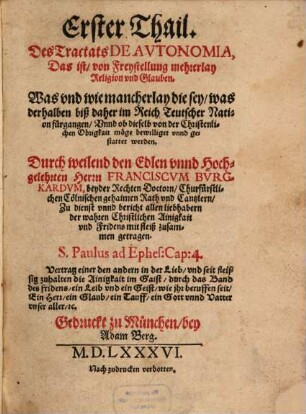 Erster Thail.
Des Tractats DE AVTONOMIA,
Das ist/ von Freystellung mehrerlay
Religion vnd Glauben.
Was vnd wie mancherlay die sey/ was
derhalben biß daher im Reich Teutscher Nati-
on fürgangen/ Vnnd ob dieselb von der Christenli-
chen Obrigkait möge bewilliget vnnd ge-
stattet werden.
Durch weilend den Edlen vnnd Hoch-
gelehrten Herrn FRANCISCVM BVRG-
KARDVM, beyder Rechten Doctorn/ Churfürstli-
chen Cölnischen gehaimen Rath vnd Cantzlern/
Zu dienst vnnd bericht allen liebhabern
der wahren Christlichen Ainigkait
vnd Fridens mit fleiß zusam-
men getragen.
S. Paulus ad Ephes: Cap: 4.
Vertrag einer den andern in der Lieb/ vnd seit fleis-
sig zuhalten die Ainigkait im Gaist/ durch das Band
des fridens/ ein Leib vnd ein Geist/ wie jhr beruffen seit/
Ein Herr/ ein Glaub/ ein Tauff/ ein Gott vnnd Vatter
vnser aller/ ꝛc.
Gedruckt zu München/ bey
Adam Berg.
M. D. LXXXVI.
Nach zudrucken verbotten.